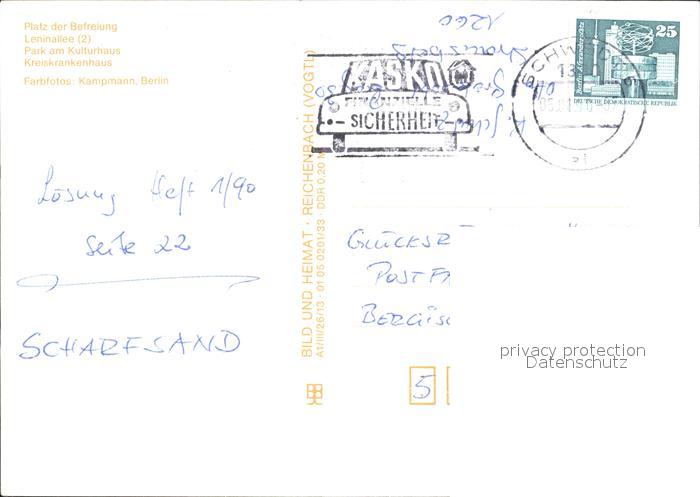 Platz der Befreiung
Leninallee (2)
Park am Kulturhaus
Kreiskrankenhaus
Farbfotos: Kampmann, Berlin
Lösung Heft 1/90
Seite 22
SCHARFSAND
BILD UND HEIMAT · REICHENBACH (VOGTL)
A1/III/26/13 · 01 05 0201/33 · DDR 0,20 M
1260
Strausberg
KASKO
FINANZIELLE
SICHERHEIT
SCHW
13
25
Berlin, Alexanderplatz
DEUTSCHE DEMOKRATISCHE REPUBLIK
GLÜCKSR
POSTFA
BERGISC
5
privacy protection
Datenschutz